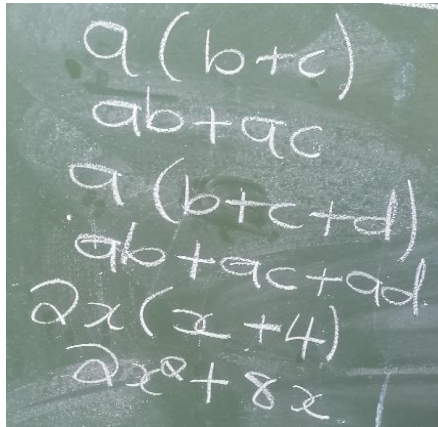 a(b+c)
ab+ac
a(b+c+d)
ab+ac+ad
2x(x+4)
2x²+8x